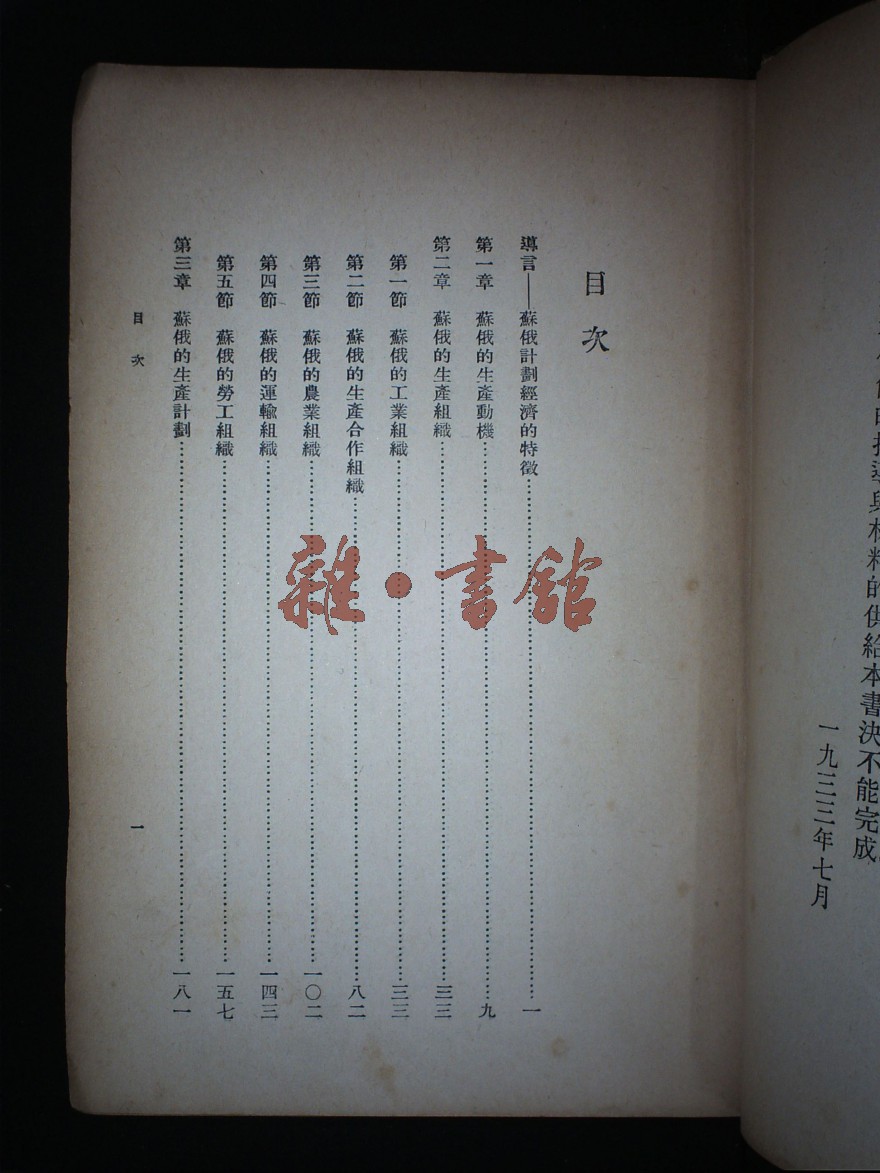 的供給本書決不能完成
一九三三年七月
目次
導言——蘇俄計劃經濟的特徵……一
第一章　蘇俄的生產動機……九
第二章　蘇俄的生產組織……三三
第一節　蘇俄的工業組織……三三
第二節　蘇俄的生產合作組織……八二
第三節　蘇俄的農業組織……一〇二
第四節　蘇俄的運輸組織……一四三
第五節　蘇俄的勞工組織……一五七
第三章　蘇俄的生產計劃……一八一
目次
一
雜・書館